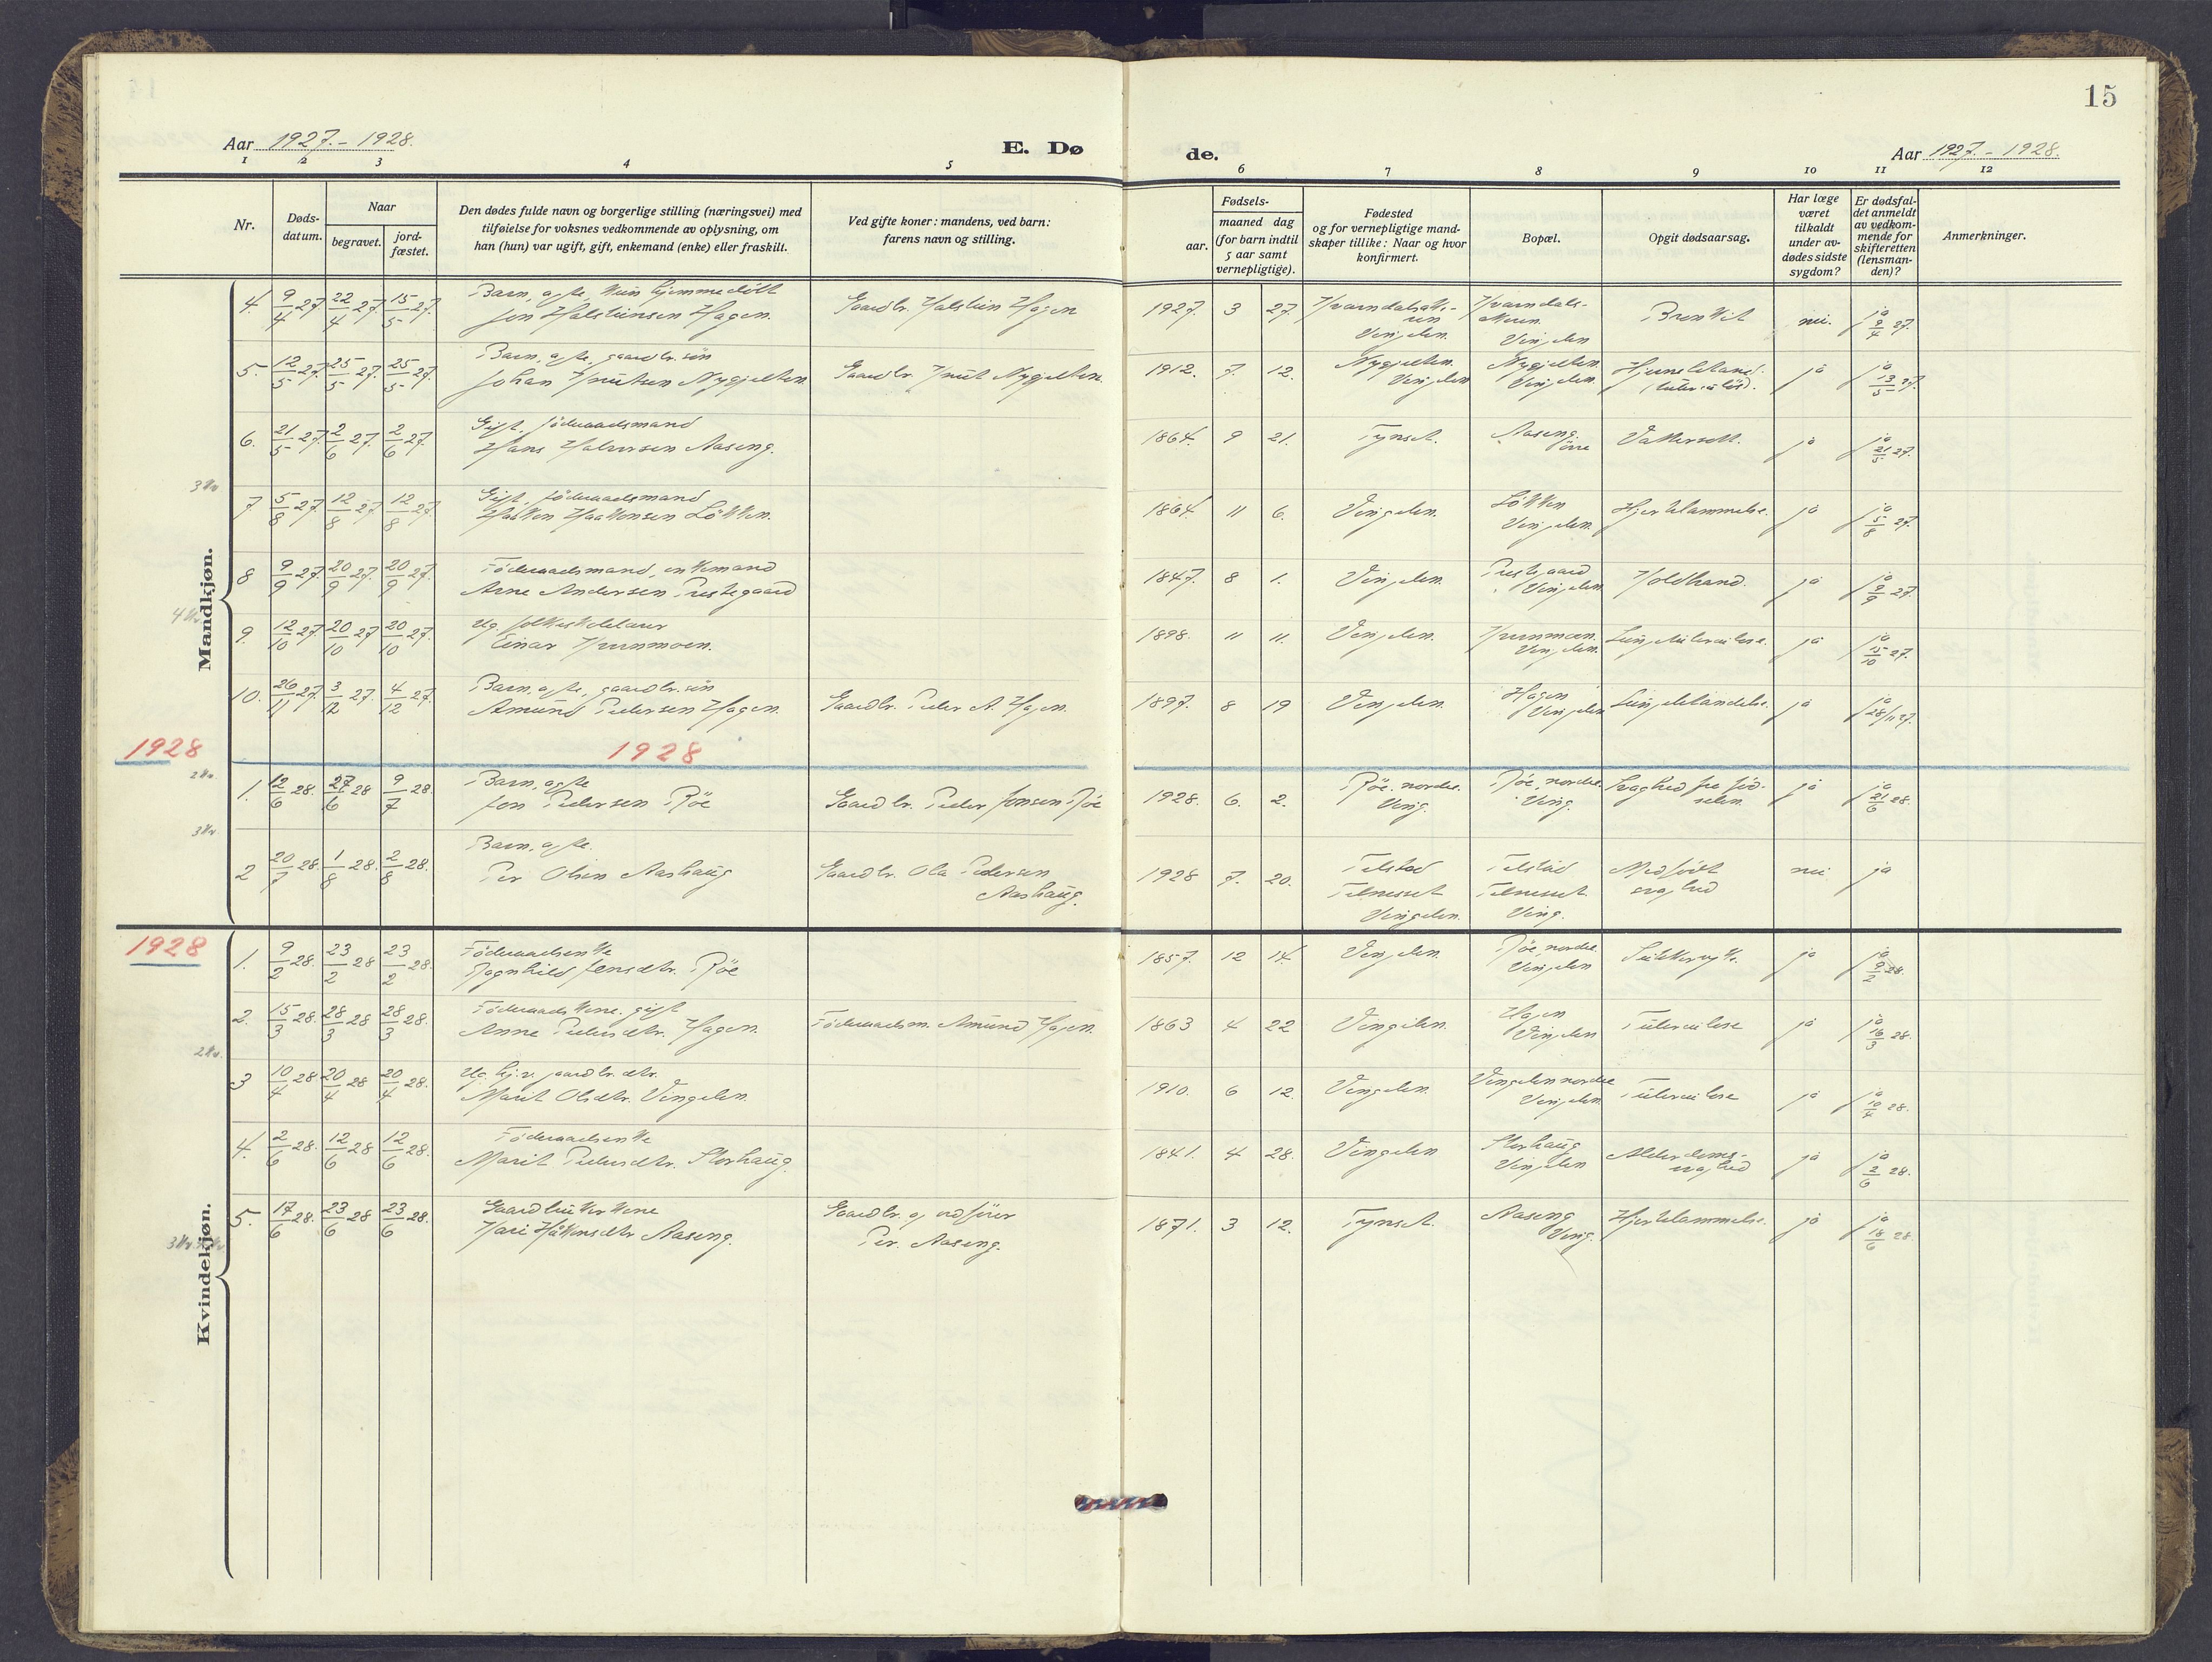 15
Aar 1927.-1928.
E. Dø
de.
Aar 1927.-1928.
1 2 3 4 5 6 7 8 9 10 11 12
Nr.
Døds-
datum.
Naar
begravet.
jord-
fæstet.
Den dødes fulde navn og borgerlige stilling (næringsvei) med
tilføielse for voksnes vedkommende av oplysning, om
han (hun) var ugift, gift, enkemand (enke) eller fraskilt.
Ved gifte koner: mandens, ved barn:
farens navn og stilling.
Fødsels-
aar.
maaned dag
(for barn indtil
5 aar samt
vernepligtige).
Fødested
og for vernepligtige mand-
skaper tillike: Naar og hvor
konfirmert.
Bopæl.
Opgit dødsaarsag.
Har læge
været
tilkaldt
under av-
dødes sidste
sygdom?
Er dødsfal-
det anmeldt
av vedkom-
mende for
skifteretten
(lensman-
den)?
Anmerkninger.
Mandkjøn.
4. 9/4 27. 22/4 27. 15/5 27. Barn, ægte, hjemmedöbt
Jon Halsteinsen Hagen. Gaardbr. Halstein Hagen 1927. 3 27. Vingelen. Vingelen nei. ja 9/4 27.
5. 12/5 27. 25/5 27. 25/5 27. Barn, ægte, gaardbr. sön
Johan Knutsen Nygjelten. Gaardbr. Knut Nygjelten. 1912. 7. 12. Nygjelten. Vingelen Nygjelten. Vingelen. ja ja 13/5 27.
6. 21/5 27. 2/6 27. 2/6 27. Gift, föderaadsmand
Hans Halvorsen Aaseng. 1864. 9 21. Tynset. Aaseng. Vattersott. ja ja 21/5 27.
7 5/8 27. 12/8 27. 12/8 27. Gift, föderaadsmand
Haakon Haakonsen Lökken. 1864. 11 6. Vingelen. Lökken Vingelen. Hjertelammelse. ja ja 5/8 27.
8 9/9 27. 20/9 27. 20/9 27. Föderaadsmand, enkemand
Arne Andersen Prestegaard 1847. 8 1. Vingelen. Prestegaard Vingelen. Koldbrand. ja ja 9/9 27.
9. 12/10 27. 20/10 27 20/10 27. Ug.
Einar Hummoen. 1898. 11 11. Vingelen. Vingelen. Lungetuberculose. ja ja 15/10 27.
10. 26/11 27. 3/12 27. 4/12 27. Barn, ægte, gaardbr. sön
Amund Pedersen Hagen. Gaardbr. Peder A. Hagen. 1897. 8 19 Vingelen. Hagen Vingelen Lungebetændelse. ja ja 28/11 27.
1928 1928
1. 12/6 28. 27/6 28 9/7 28. Barn, ægte
Jon Pedersen Röe Gaardbr. Peder Jonsen Röe 1928. 6. 2. Röe, nordre. Ving. Röe, nordre. Ving. Svaghed fra föd-
selen. ja ja 21/6 28.
2 20/7 28. 1/8 28. 2/8 28. Barn, ægte.
Per Olsen Aashaug Gaardbr. Ola Pedersen
Aashaug. 1928 7. 20. Telstad
Telneset
Vingelen. Telstad
Telneset
Ving. Medfödt
svaghed nei ja
Kvindekjøn.
1928
1. 9/2 28. 23/2 28 23/2 28. Föderaadsenke
Ragnhild Jensdtr. Röe 1857. 12 14. Vingelen. Röe, nordre. Vingelen ja ja 9/2 28.
2. 15/3 28. 28/3 28 28/3 28. Föderaadskone, gift
Anne Pedersdtr. Hagen. Föderaadsm. Amund Hagen. 1863 4 22 Vingelen. Hagen Vingelen Tuberculose ja ja 16/3 28.
3 10/4 28 20/4 28 20/4 28. Ug. hj.v. gaardbr. dtr.
Marit Olsdtr. Vingelen. 1910. 6 12. Vingelen. Vingelen nordre Vingelen. Tuberculose ja ja 10/4 28.
4. 2/6 28. 12/6 28 12/6 28. Föderaadsenke
Marit Pedersdtr. Storhaug. 1841. 4 28. Vingelen Storhaug Vingelen Alderdoms-
svaghed ja ja 2/6 28.
5. 17/6 28. 23/6 28 23/6 28. Gaardbrukerkone
Kari Håkonsdtr Aaseng. Gaardbr. og ordfører
Per. Aaseng. 1871. 3 12. Tynset. Aaseng Ving. Hjertelammelse. ja ja 18/6 28.